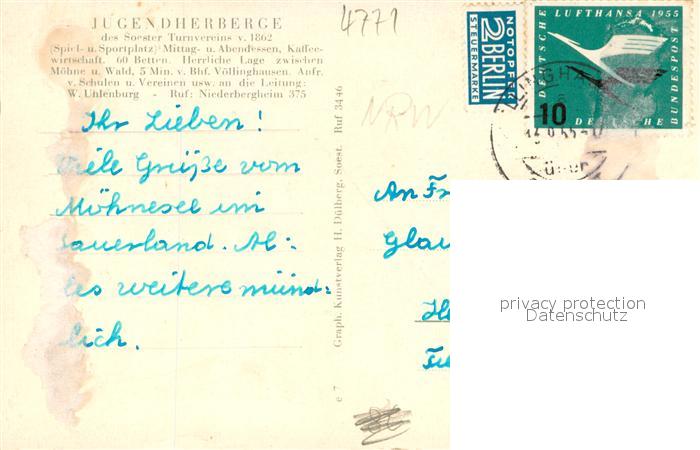 4771
JUGENDHERBERGE
des Soester Turnvereins v. 1862
(Spiel- u. Sportplatz) Mittag- u. Abendessen, Kaffee-
wirtschaft. 60 Betten. Herrliche Lage zwischen
Möhne u. Wald, 5 Min. v. Bhf. Völlinghausen. Anfr.
v. Schulen u. Vereinen usw. an die Leitung:
W. Uhlenburg - Ruf: Niederbergheim 375
Ihr Lieben!
Viele Grüße vom
Möhnesee im
Sauerland. Al-
les weitere münd-
lich.
e 7 Graph. Kunstverlag H. Dülberg, Soest. Ruf 3446
NRW
NOTOPFER
2 BERLIN
STEUERMARKE
DEUTSCHE LUFTHANSA 1955
10
DEUTSCHE BUNDESPOST
An Fr
Glau
privacy protection
Datenschutz